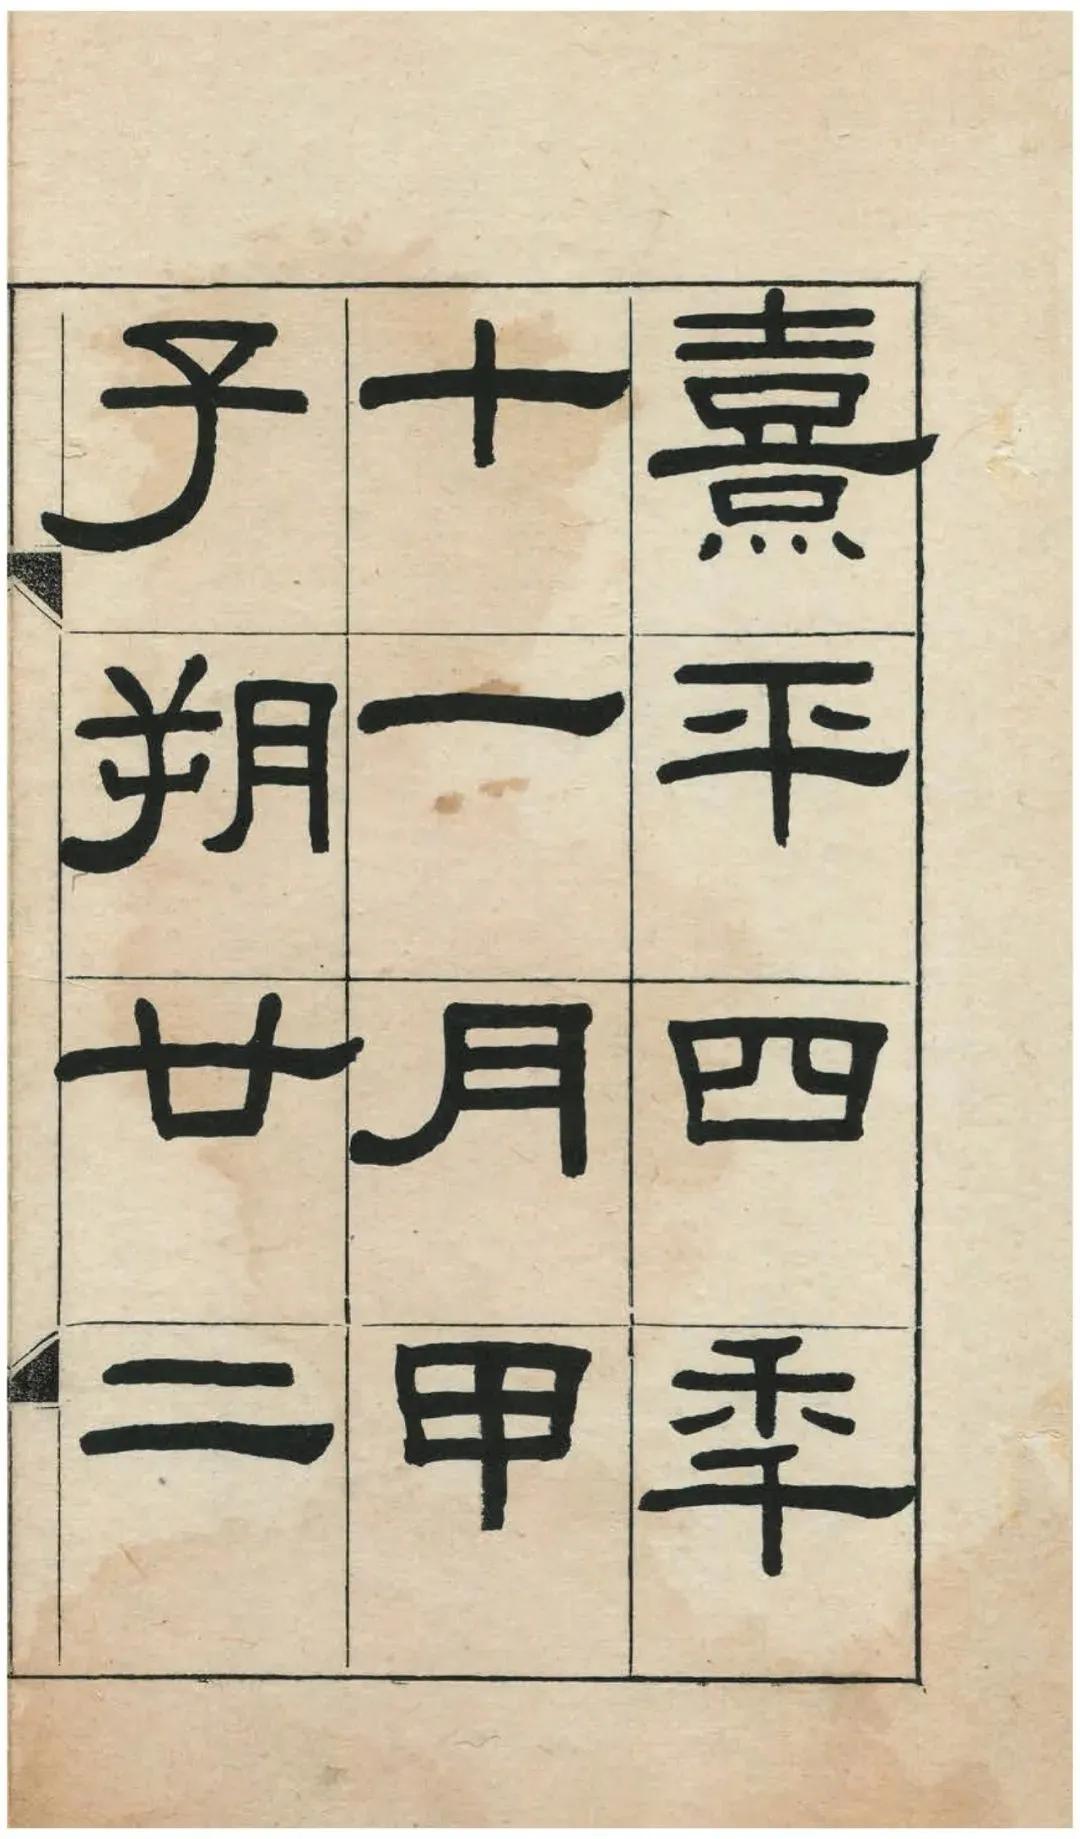 熹平四秊
十一月甲
子朔廿二